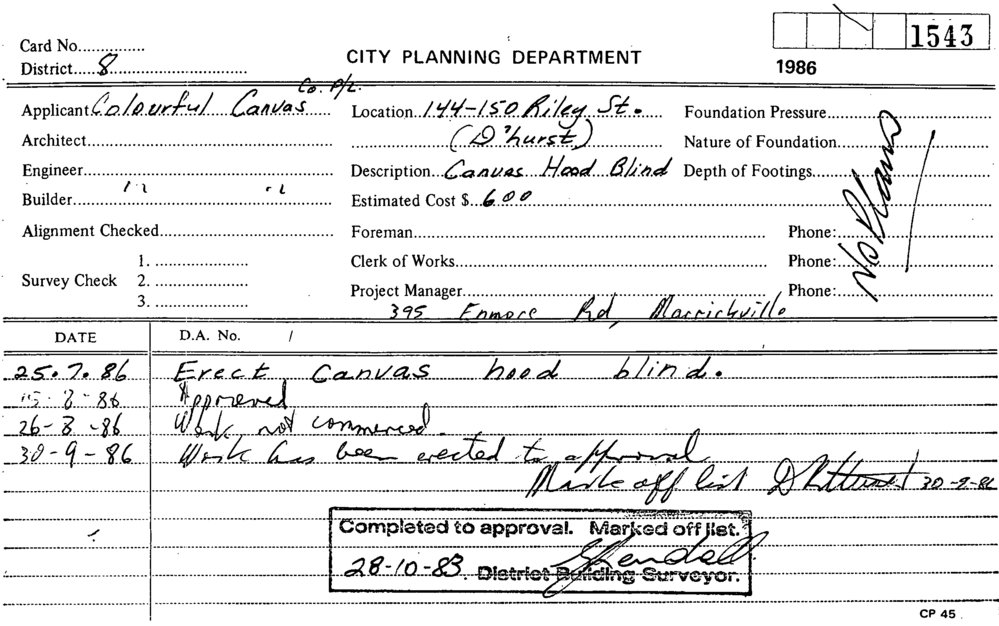 1543
Card No...............
CITY PLANNING DEPARTMENT
District.....8
1986
Applicant Colourful Canvas Co. P/L.
Location 144-150 Riley St.
Foundation Pressure
Architect
(D'hurst)
Nature of Foundation
Engineer
Description Canvas Hood Blind
Depth of Footings
Builder " "
Estimated Cost $ 600
No Plans
Alignment Checked
Foreman
Phone:
Survey Check
1.
2.
3.
Clerk of Works
Phone:
Project Manager
Phone:
395 Enmore Rd, Marrickville
DATE D.A. No. /
25.7.86 Erect canvas hood blind.
15-8-86 Approved
26-8-86 Work not commenced.
30-9-86 Work has been erected to approval
Mark off list 30-9-86
Completed to approval. Marked off list.
28-10-83. District Building Surveyor.
CP 45